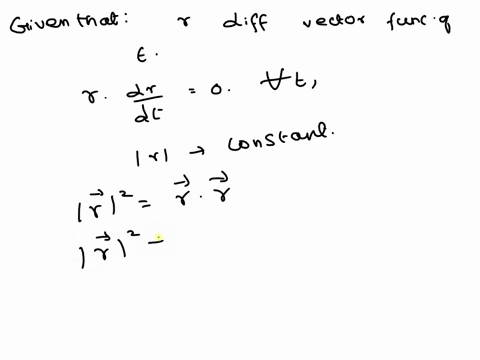 Given that: r diff vector func. q
t.
r. dr/dt = 0. ∀t,
|r| → constant.
|r⃗|² = r⃗ . r⃗
|r⃗|² =